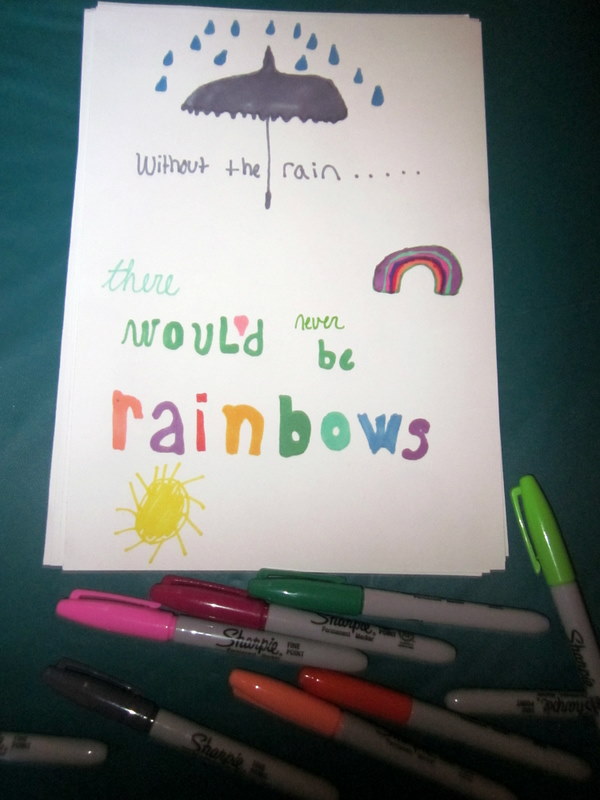 Without the rain.....
there
would never
be
rainbows
Sharpie FINE POINT
Permanent Marker
Sharpie FINE POINT
Permanent Marker
Sharpie
Sharpie